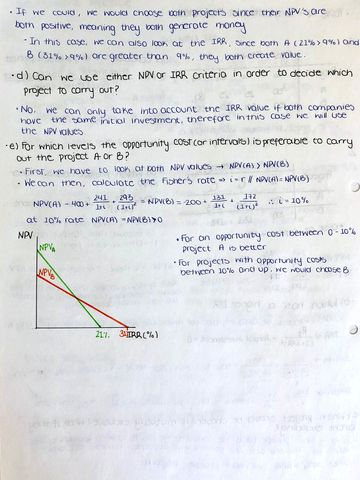 • If we could, we would choose both projects since their NPV's are
both positive, meaning they both generate money
- In this case, we can also look at the IRR, since both A (21% > 9%) and
B (31% > 9%) are greater than 9%, they both create value.
• d) Can we use either NPV or IRR criteria in order to decide which
project to carry out?
• No. we can only take into account the IRR value if both companies
have the same initial investment, therefore in this case we will use
the NPV values.
• e) For which levels the opportunity cost (or intervals) is preferable to carry
out the project A or B?
• First, we have to look at both NPV values → NPV(A) > NPV(B)
• We can then, calculate the Fisher's rate ⇒ i = r // NPV(A) = NPV(B)
NPV(A) - 400 + 241/1+i + 293/(1+i)² = NPV(B) = -200 + 132/1+i + 172/(1+i)² ∴ i = 10%
at 10% rate NPV(A) = NPV(B) > 0
NPV
NPVA
NPVB
21%
31
IRR (%)
• For an opportunity cost between 0 - 10%
project A is better
• For projects with opportunity costs
between 10% and up. we would choose B